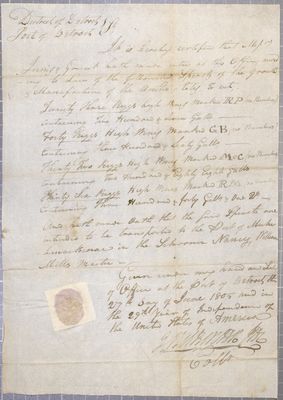 District of Detroit
Port of Detroit
It is hereby certified that
hath made entry at this Office
of the following Spirits of the Growth
& Manufacture of the United States to wit,
Twenty Three Kegs high Wines Marked RP no Numbers
Containing Two Hundred & Gallo
Forty Keggs High Wines Marked GB no Numbers
Containing Three Hundred & Sixty Gallo
Thirty Two Keggs High Wines Marked M&C no Numbers
Containing Two Hundred & Eighty Eight Gallo
Thirty Six Keggs High Wines Marked R
Containing Three Hundred & forty Gallo
And hath made Oath that the said Spirits are
intended to be transported to the Port of Michi
in the Schooner Nancy, William
Mills Master
Given under my hand and Seal
of Office at the Port of Detroit the
27th Day of June 1805 and in
the 29th Year of Independence of
the United States of America
Collr